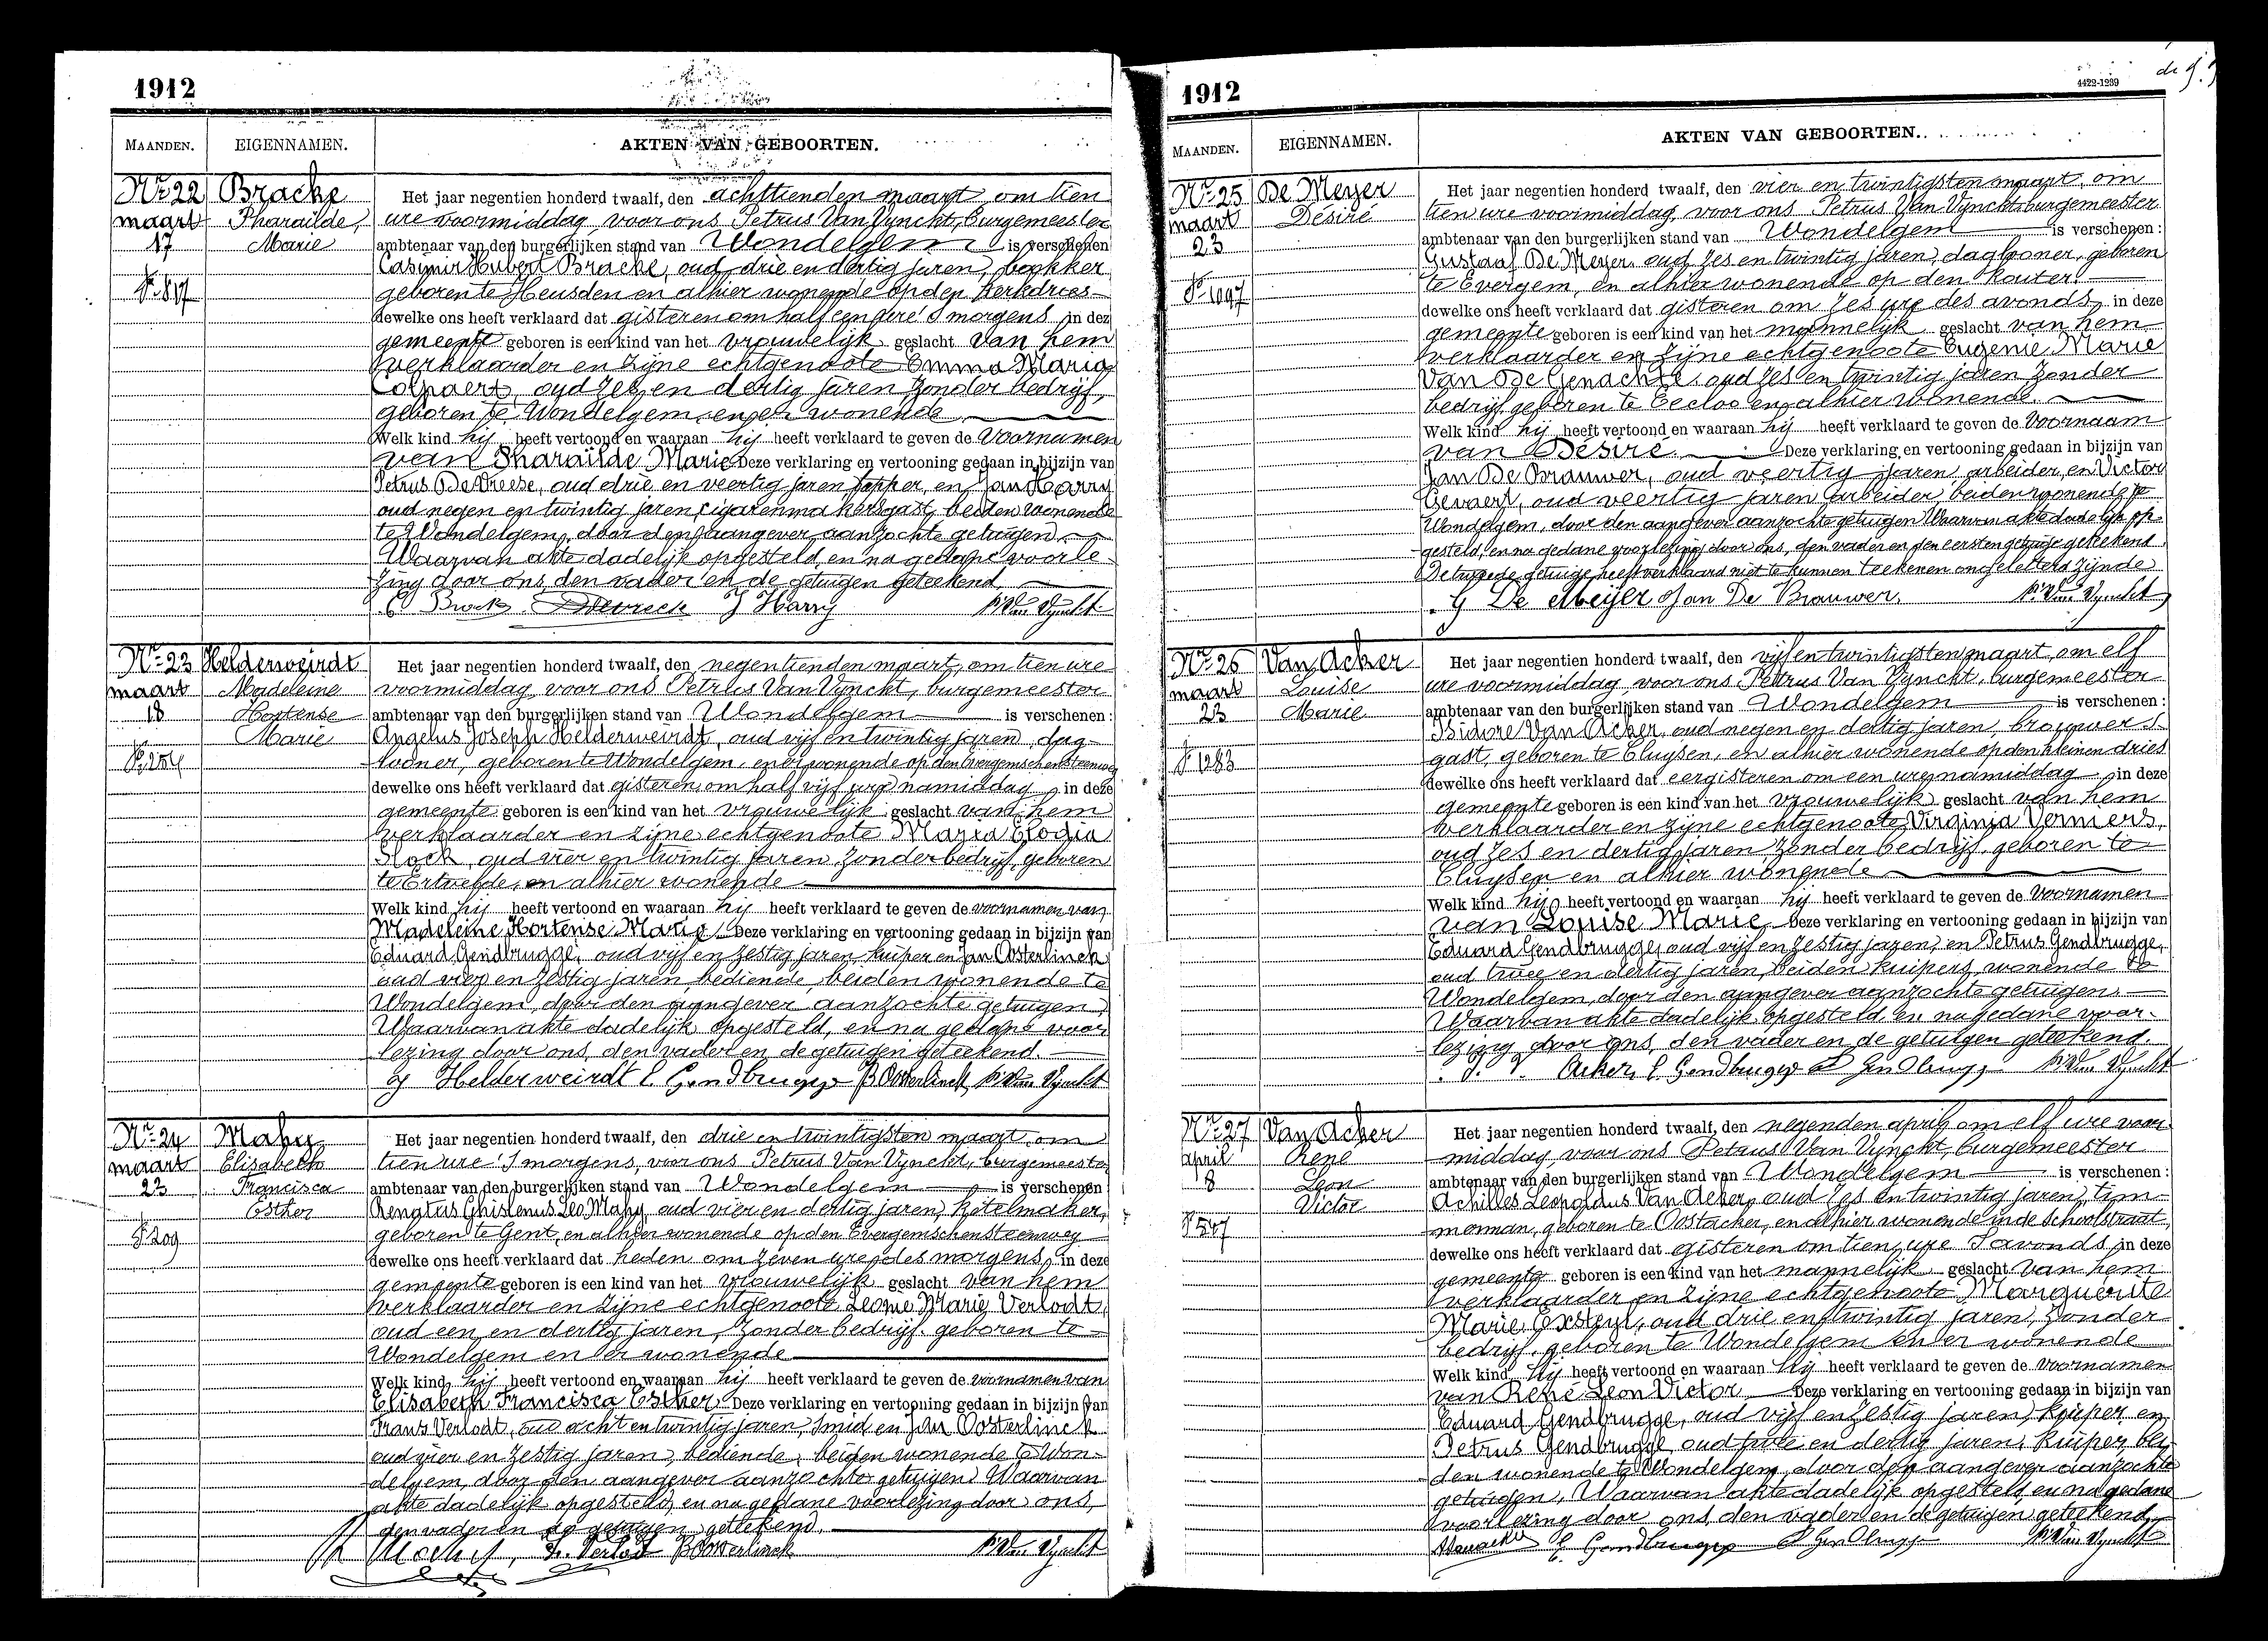 1912
MAANDEN. EIGENNAMEN. AKTEN VAN GEBOORTEN.
Nr 22
maart
17
F. 817
Bracke
Pharaïlde,
Marie
Het jaar negentien honderd twaalf, den achttienden maart, om tien
ure voormiddag, voor ons Petrus Van Vynckt, burgemeester
ambtenaar van den burgerlijken stand van Wondelgem is verschenen
Casimir Hubert Bracke, oud drie en dertig jaren, bakker
geboren te Heusden en alhier wonende op den Kerkdries
dewelke ons heeft verklaard dat gisteren om half een ure 's morgens in deze
gemeente geboren is een kind van het vrouwelijk geslacht van hem
verklaarder en zijne echtgenoote Emma Maria
Colpaert, oud zes en dertig jaren, zonder bedrijf,
geboren te Wondelgem en er wonende
Welk kind hij heeft vertoond en waaraan hij heeft verklaard te geven de voornamen
van Pharaïlde Marie Deze verklaring en vertooning gedaan in bijzijn van
Petrus De Vreese, oud drie en veertig jaren, tapper, en Jan Harry
oud negen en twintig jaren, cigarenmakersgast, beiden wonende
te Wondelgem, door den aangever aanzochte getuigen.
Waarvan akte dadelijk opgesteld, en na gedane voorle-
zing door ons, den vader en de getuigen geteekend.
C Brack J Harry P. Van Vynckt
Nr 23
maart
18
Helderweirdt
Madeleine
Hortense
Marie
Het jaar negentien honderd twaalf, den negentienden maart, om tien ure
voormiddag voor ons Petrus Van Vynckt, burgemeester
ambtenaar van den burgerlijken stand van Wondelgem is verschenen:
Angelus Joseph Helderweirdt, oud vijf en twintig jaren, dag-
looner, geboren te Wondelgem, en er wonende op den Evergemschensteenweg
dewelke ons heeft verklaard dat gisteren, om half vijf ure namiddag, in deze
gemeente geboren is een kind van het vrouwelijk geslacht van hem
verklaarder en zijne echtgenoote Maria Elogia
Stock, oud vier en twintig jaren, zonder bedrijf, geboren
te Ertvelde, en alhier wonende
Welk kind hij heeft vertoond en waaraan hij heeft verklaard te geven de voornamen van
Madeleine Hortense Marie. Deze verklaring en vertooning gedaan in bijzijn van
Eduard Gendbrugge, oud vijf en zestig jaren, kuiper en Jan Oosterlinck
oud vier en zestig jaren, bediende, beiden wonende te
Wondelgem, door den aangever aanzochte getuigen,
Waarvan akte dadelijk opgesteld, en na gedane voor-
lezing door ons, den vader en de getuigen geteekend.
J Helderweirdt E. Gendbrugge B Oosterlinck P. Van Vynckt
Nr 24
maart
23
F. 209
Mahy
Elisabeth
Francisca
Esther
Het jaar negentien honderd twaalf, den drie en twintigsten maart, om
tien ure 's morgens, voor ons Petrus Van Vynckt, burgemeester
ambtenaar van den burgerlijken stand van Wondelgem is verschenen
Renatus Ghislenus Leo Mahy, oud vier en dertig jaren, ketelmaker,
geboren te Gent, en alhier wonende op den Evergemschensteenweg
dewelke ons heeft verklaard dat heden om zeven ure des morgens, in deze
gemeente geboren is een kind van het vrouwelijk geslacht van hem
verklaarder en zijne echtgenoote Leonie Marie Verlodt,
oud een en dertig jaren, zonder bedrijf, geboren te
Wondelgem en er wonende
Welk kind hij heeft vertoond en waaraan hij heeft verklaard te geven de voornamen van
Elisabeth Francisca Esther. Deze verklaring en vertooning gedaan in bijzijn van
Frans Verlodt, oud acht en twintig jaren, smid en Jan Oosterlinck
oud vier en zestig jaren, bediende, beiden wonende te Won-
delgem, door den aangever aanzochte getuigen. Waarvan
akte dadelijk opgesteld, en na gedane voorlezing door ons,
den vader en de getuigen geteekend.
R Mahy, Fr. Verlodt B Oosterlinck P. Van Vynckt
1912
4422-1239
MAANDEN. EIGENNAMEN. AKTEN VAN GEBOORTEN.
Nr 25
maart
23
F. 1097
De Meyer
Désiré
Het jaar negentien honderd twaalf, den vier en twintigsten maart, om
tien ure voormiddag, voor ons Petrus Van Vynckt, burgemeester
ambtenaar van den burgerlijken stand van Wondelgem is verschenen:
Gustaaf De Meyer, oud zes en twintig jaren, daglooner, geboren
te Evergem, en alhier wonende op den Kouter.
dewelke ons heeft verklaard dat gisteren om zes ure des avonds, in deze
gemeente geboren is een kind van het mannelijk geslacht van hem
verklaarder en zijne echtgenoote Eugenie Marie
Van De Genachte, oud zes en twintig jaren zonder
bedrijf geboren te Eecloo en alhier wonende.
Welk kind hij heeft vertoond en waaraan hij heeft verklaard te geven de voornaam
van Désiré. Deze verklaring en vertooning gedaan in bijzijn van
Jan De Brauwer, oud veertig jaren, arbeider, en Victor
Gevaert, oud veertig jaren arbeider, beiden wonende te
Wondelgem, door den aangever aanzochte getuigen Waarvan akte dadelijk op-
gesteld, en na gedane voorlezing door ons, den vader en den eersten getuige geteekend.
De tweede getuige heeft verklaard niet te kunnen teekenen ongeletterd zijnde
G De Meyer Jan De Brauwer. P. Van Vynckt
Nr 26
maart
23
F. 1283
Van Acker
Louise
Marie
Het jaar negentien honderd twaalf, den vijf en twintigsten maart, om elf
ure voormiddag, voor ons Petrus Van Vynckt, burgemeester
ambtenaar van den burgerlijken stand van Wondelgem is verschenen:
Isidore Van Acker, oud negen en dertig jaren, brouwers-
gast, geboren te Cluysen, en alhier wonende op den kleinen dries
dewelke ons heeft verklaard dat eergisteren om een ure namiddag, in deze
gemeente geboren is een kind van het vrouwelijk geslacht van hem
verklaarder en zijne echtgenoote Virginia Vermers,
oud zes en dertig jaren, zonder bedrijf, geboren te
Cluysen en alhier wonende
Welk kind hij heeft vertoond en waaraan hij heeft verklaard te geven de voornamen
van Louise Marie Deze verklaring en vertooning gedaan in bijzijn van
Eduard Gendbrugge, oud vijf en zestig jaren, en Petrus Gendbrugge,
oud twee en dertig jaren, beiden kuipers, wonende te
Wondelgem, door den aangever aanzochte getuigen.
Waarvan akte dadelijk opgesteld, en na gedane voor-
lezing door ons, den vader en de getuigen geteekend.
Acker, E Gendbrugge P. Van Vynckt
Nr 27
april
8
F. 547
Van Acker
René
Leon
Victor
Het jaar negentien honderd twaalf, den negenden april, om elf ure voor-
middag, voor ons Petrus Van Vynckt, burgemeester
ambtenaar van den burgerlijken stand van Wondelgem is verschenen:
Achilles Leopoldus Van Acker, oud zes en twintig jaren, tim-
merman, geboren te Oostacker, en alhier wonende in de Schoolstraat,
dewelke ons heeft verklaard dat gisteren om tien ure 's avonds, in deze
gemeente geboren is een kind van het mannelijk geslacht van hem
verklaarder en zijne echtgenoote Marguerite
Marie Exsteyl, oud drie en twintig jaren, zonder
bedrijf, geboren te Wondelgem en er wonende
Welk kind hij heeft vertoond en waaraan hij heeft verklaard te geven de voornamen
van René Leon Victor. Deze verklaring en vertooning gedaan in bijzijn van
Eduard Gendbrugge, oud vijf en zestig jaren, kuiper, en
Petrus Gendbrugge, oud twee en dertig jaren, kuiper, bei-
den wonende te Wondelgem, door den aangever aanzochte
getuigen, Waarvan akte dadelijk opgesteld, en na gedane
voorlezing door ons, den vader en de getuigen geteekend,
E. Gendbrugge P. Van Vynckt